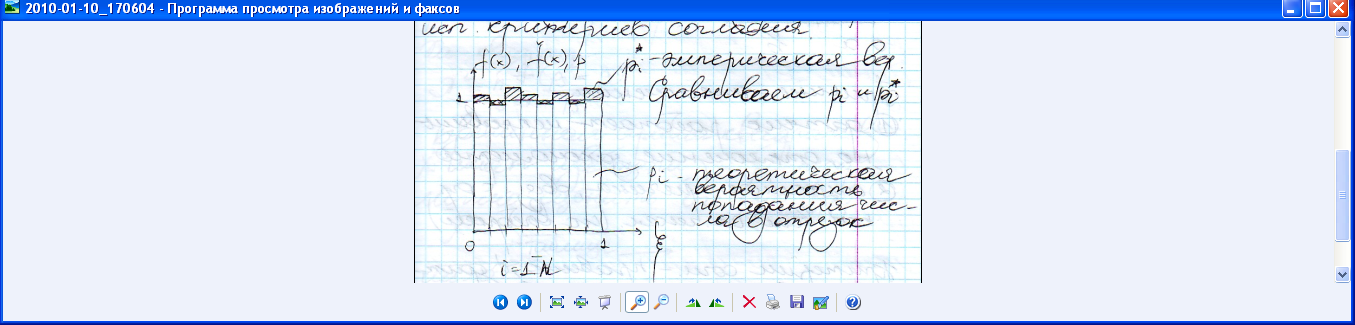 2010-01-10_170604 - Программа просмотра изображений и факсов
исп. критериев согласия.
f(x), f̌(x), p
pi* - эмперическая вер.
1
Сравниваем pi и pi*
pi - теоретическая
вероятность
попадания чис-
ла в отрезок
0
1
ξ
i=1-N